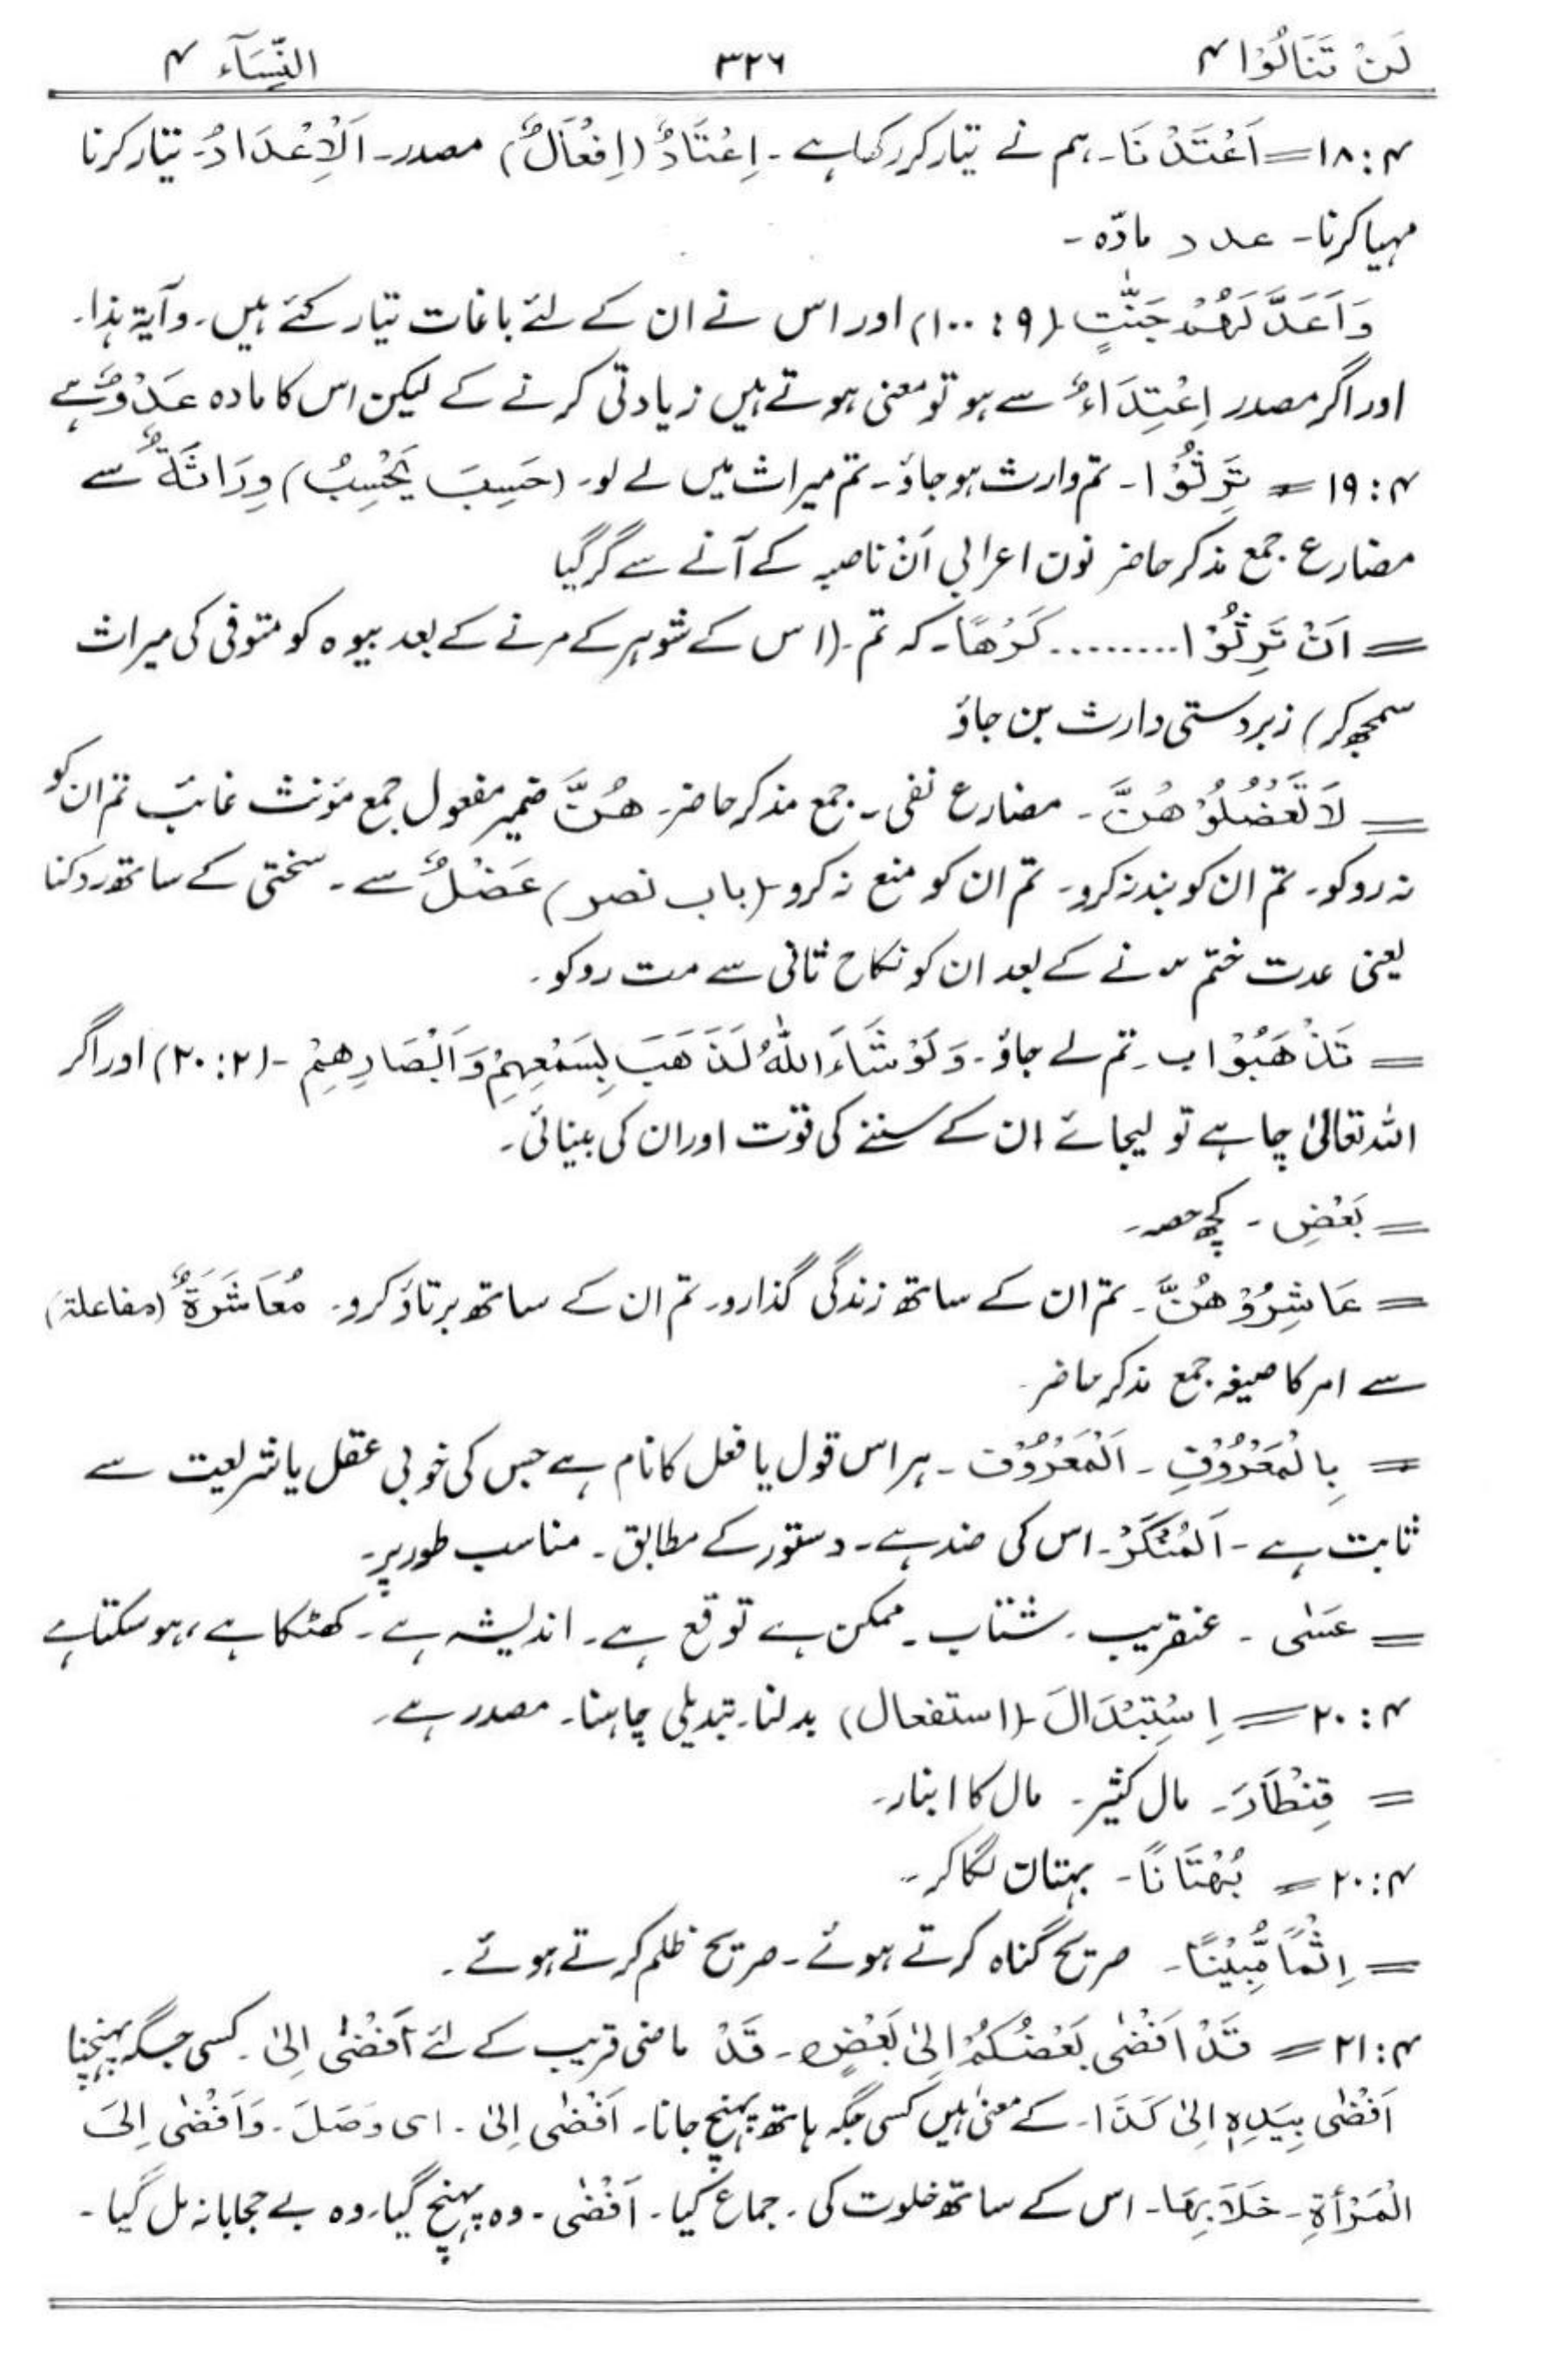 لَنْ تَنَالُوْا ۴ ۳۲۶ النِّسَآء ۴
۴:۱۸= اَعْتَدْنَا۔ ہم نے تیار کر رکھا ہے ۔ اِعْتَادٌ (اِفْعَالٌ) مصدر۔ اَلْاِعْدَادُ۔ تیار کرنا
مہیا کرنا۔ عدد مادّہ ۔
وَاَعَدَّ لَهُمْ جَنّٰتٍ (۹:۱۰۰) اور اس نے ان کے لئے باغات تیار کئے ہیں۔ و آیۃ ہذا۔
اور اگر مصدر اِعْتِدَاءٌ سے ہو تو معنی ہوتے ہیں زیادتی کرنے کے لیکن اس کا مادہ عَدْوٌ ہے
۴:۱۹= تَرِثُوْا۔ تم وارث ہو جاؤ۔ تم میراث میں لے لو۔ (حَسِبَ یَحْسِبُ) وِرَاثَةٌ سے
مضارع جمع مذکر حاضر نون اعرابی اَنْ ناصبہ کے آنے سے گر گیا
= اَنْ تَرِثُوْا ......... کَرْهًا۔ کہ تم۔ (اس کے شوہر کے مرنے کے بعد بیوہ کو متوفی کی میراث
سمجھ کر) زبردستی وارث بن جاؤ
= لَا تَعْضُلُوْهُنَّ ۔ مضارع نفی ۔ جمع مذکر حاضر۔ هُنَّ ضمیر مفعول جمع مؤنث غائب تم ان کو
نہ روکو۔ تم ان کو بند نہ کرو۔ تم ان کو منع نہ کرو۔ (باب نصر) عَضْلٌ سے ۔ سختی کے ساتھ روکنا
یعنی عدت ختم ہونے کے بعد ان کو نکاح ثانی سے مت روکو۔
= تَذْهَبُوْا بِ۔ تم لے جاؤ۔ وَلَوْ شَآءَ اللّٰهُ لَذَهَبَ بِسَمْعِهِمْ وَاَبْصَارِهِمْ ۔ (۲:۲۰) اور اگر
اللہ تعالیٰ چاہے تو لیجائے ان کے سننے کی قوّت اور ان کی بینائی۔
= بَعْضِ ۔ کچھ حصہ۔
= عَاشِرُوْهُنَّ۔ تم ان کے ساتھ زندگی گذارو۔ تم ان کے ساتھ برتاؤ کرو۔ مُعَاشَرَةٌ (مفاعلۃ)
سے امر کا صیغہ جمع مذکر حاضر۔
= بِالْمَعْرُوْفِ ۔ اَلْمَعْرُوْف ۔ ہر اس قول یا فعل کا نام ہے جس کی خوبی عقل یا شریعت سے
ثابت ہے ۔ اَلْمُنْکَرُ۔ اس کی ضد ہے۔ دستور کے مطابق ۔ مناسب طور پر۔
= عَسٰی ۔ عنقریب ۔ شتاب ۔ ممکن ہے توقع ہے ۔ اندیشہ ہے ۔ کھٹکا ہے، ہو سکتا ہے
۴:۲۰= اِسْتِبْدَالَ۔ (استفعال) بدلنا۔ تبدیلی چاہنا۔ مصدر ہے۔
= قِنْطَارَ۔ مال کثیر۔ مال کا انبار۔
۴:۲۰= بُهْتَانًا ۔ بہتان لگا کر۔
= اِثْمًا مُّبِيْنًا۔ صریح گناہ کرتے ہوئے ۔ صریح ظلم کرتے ہوئے ۔
۴:۲۱= قَدْ اَفْضٰی بَعْضُکُمْ اِلٰی بَعْضٍ ۔ قَدْ ماضی قریب کے لئے اَفْضٰی اِلیٰ ۔ کسی جگہ پہنچنا
اَفْضٰی بِیَدِہٖ اِلیٰ کَذَا۔ کے معنی ہیں کسی جگہ ہاتھ پہنچ جانا۔ اَفْضٰی اِلیٰ ۔ ای وَصَلَ ۔ وَاَفْضٰی اِلَی
الْمَرْأَۃِ ۔ خَلَا بِہَا ۔ اس کے ساتھ خلوت کی ۔ جماع کیا ۔ اَفْضٰی ۔ وہ پہنچ گیا۔ وہ بے حجابانہ مل گیا ۔